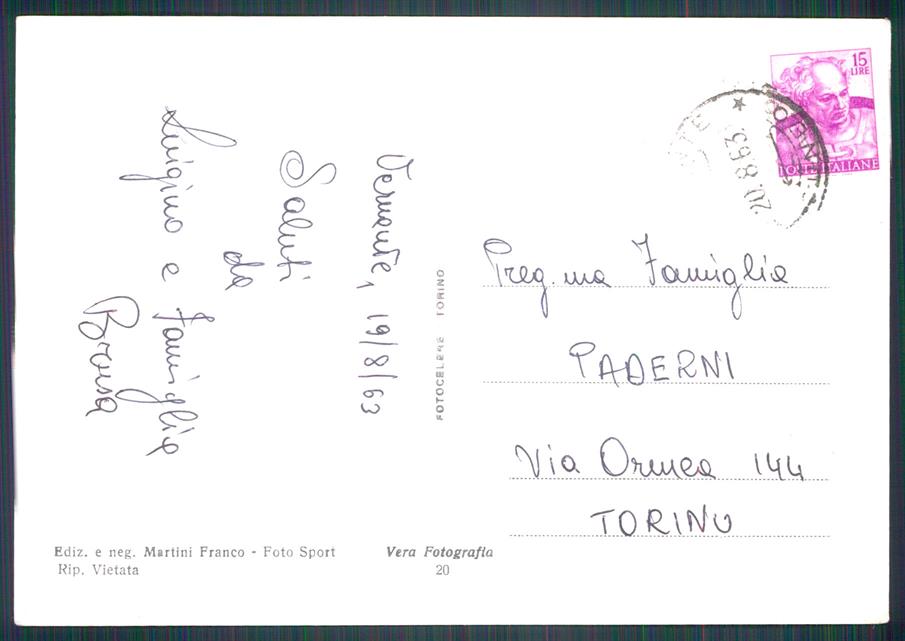 Vernante, 19/8/63
Saluti
da
Luigino e famiglia
FOTOCELERE TORINO
15
LIRE
POSTE ITALIANE
20.8.63
Preg.ma Famiglia
PADERNI
Via Ormea 144
TORINO
Ediz. e neg. Martini Franco - Foto Sport
Rip. Vietata
Vera Fotografia
20